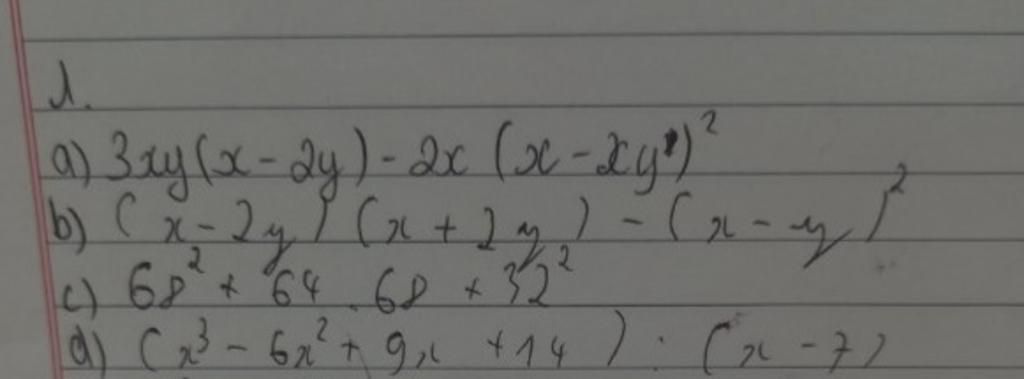 1.
a) 3xy(x - 2y) - 2x (x - 2y)²
b) (x - 2y) (x + 2y) - (x - y)²
c) 68² + 64 . 68 + 32²
d) (x³ - 6x² + 9x + 14) : (x - 7)